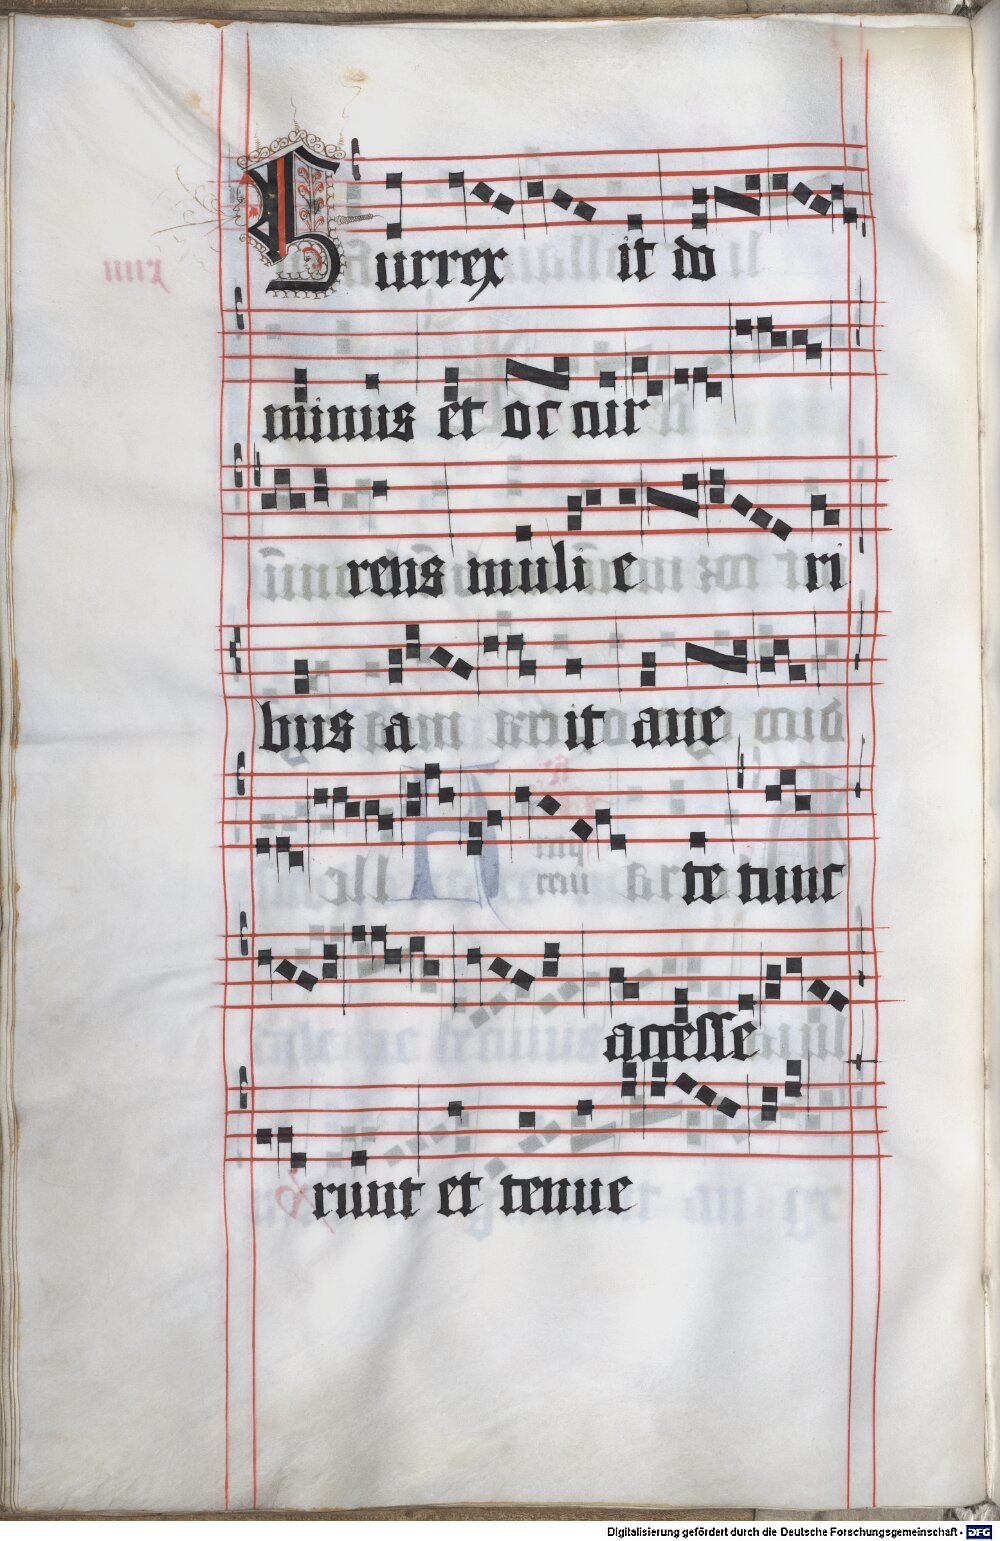 Surrex it do
minus et oc cur
rens muli e ri
bus a it aue
te tunc
accesse
runt et tenue
Digitalisierung gefördert durch die Deutsche Forschungsgemeinschaft - DFG